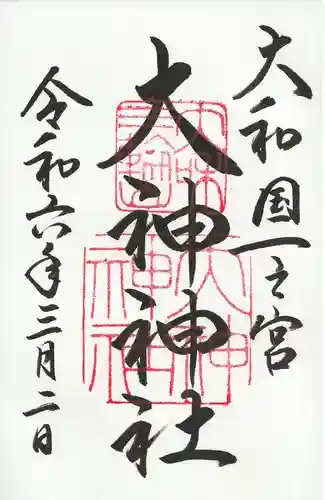 大和国一之宮
大神神社
令和六年三月二日